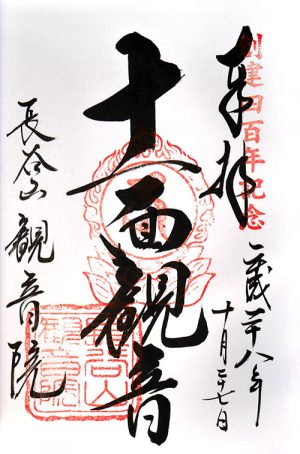 創建四百年記念
奉拝
平成二十八年
十月二十七日
十一面観音
長谷山観音院